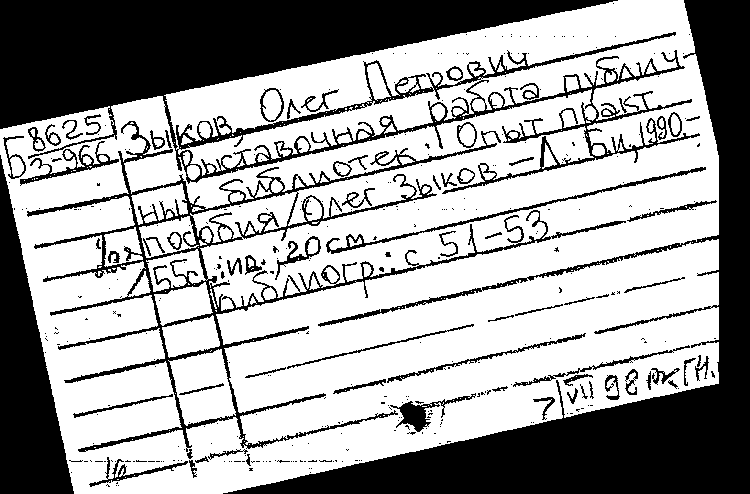 Г8625
D3-966
Зыков, Олег Петрович
Выставочная работа публич-
ных библиотек: Опыт практ.
пособия/Олег Зыков.-Л.: Би, 1990.-
55с.:ил.; 20см.
Библиогр.: с. 51-53.
7/VII 98 РК ГН.